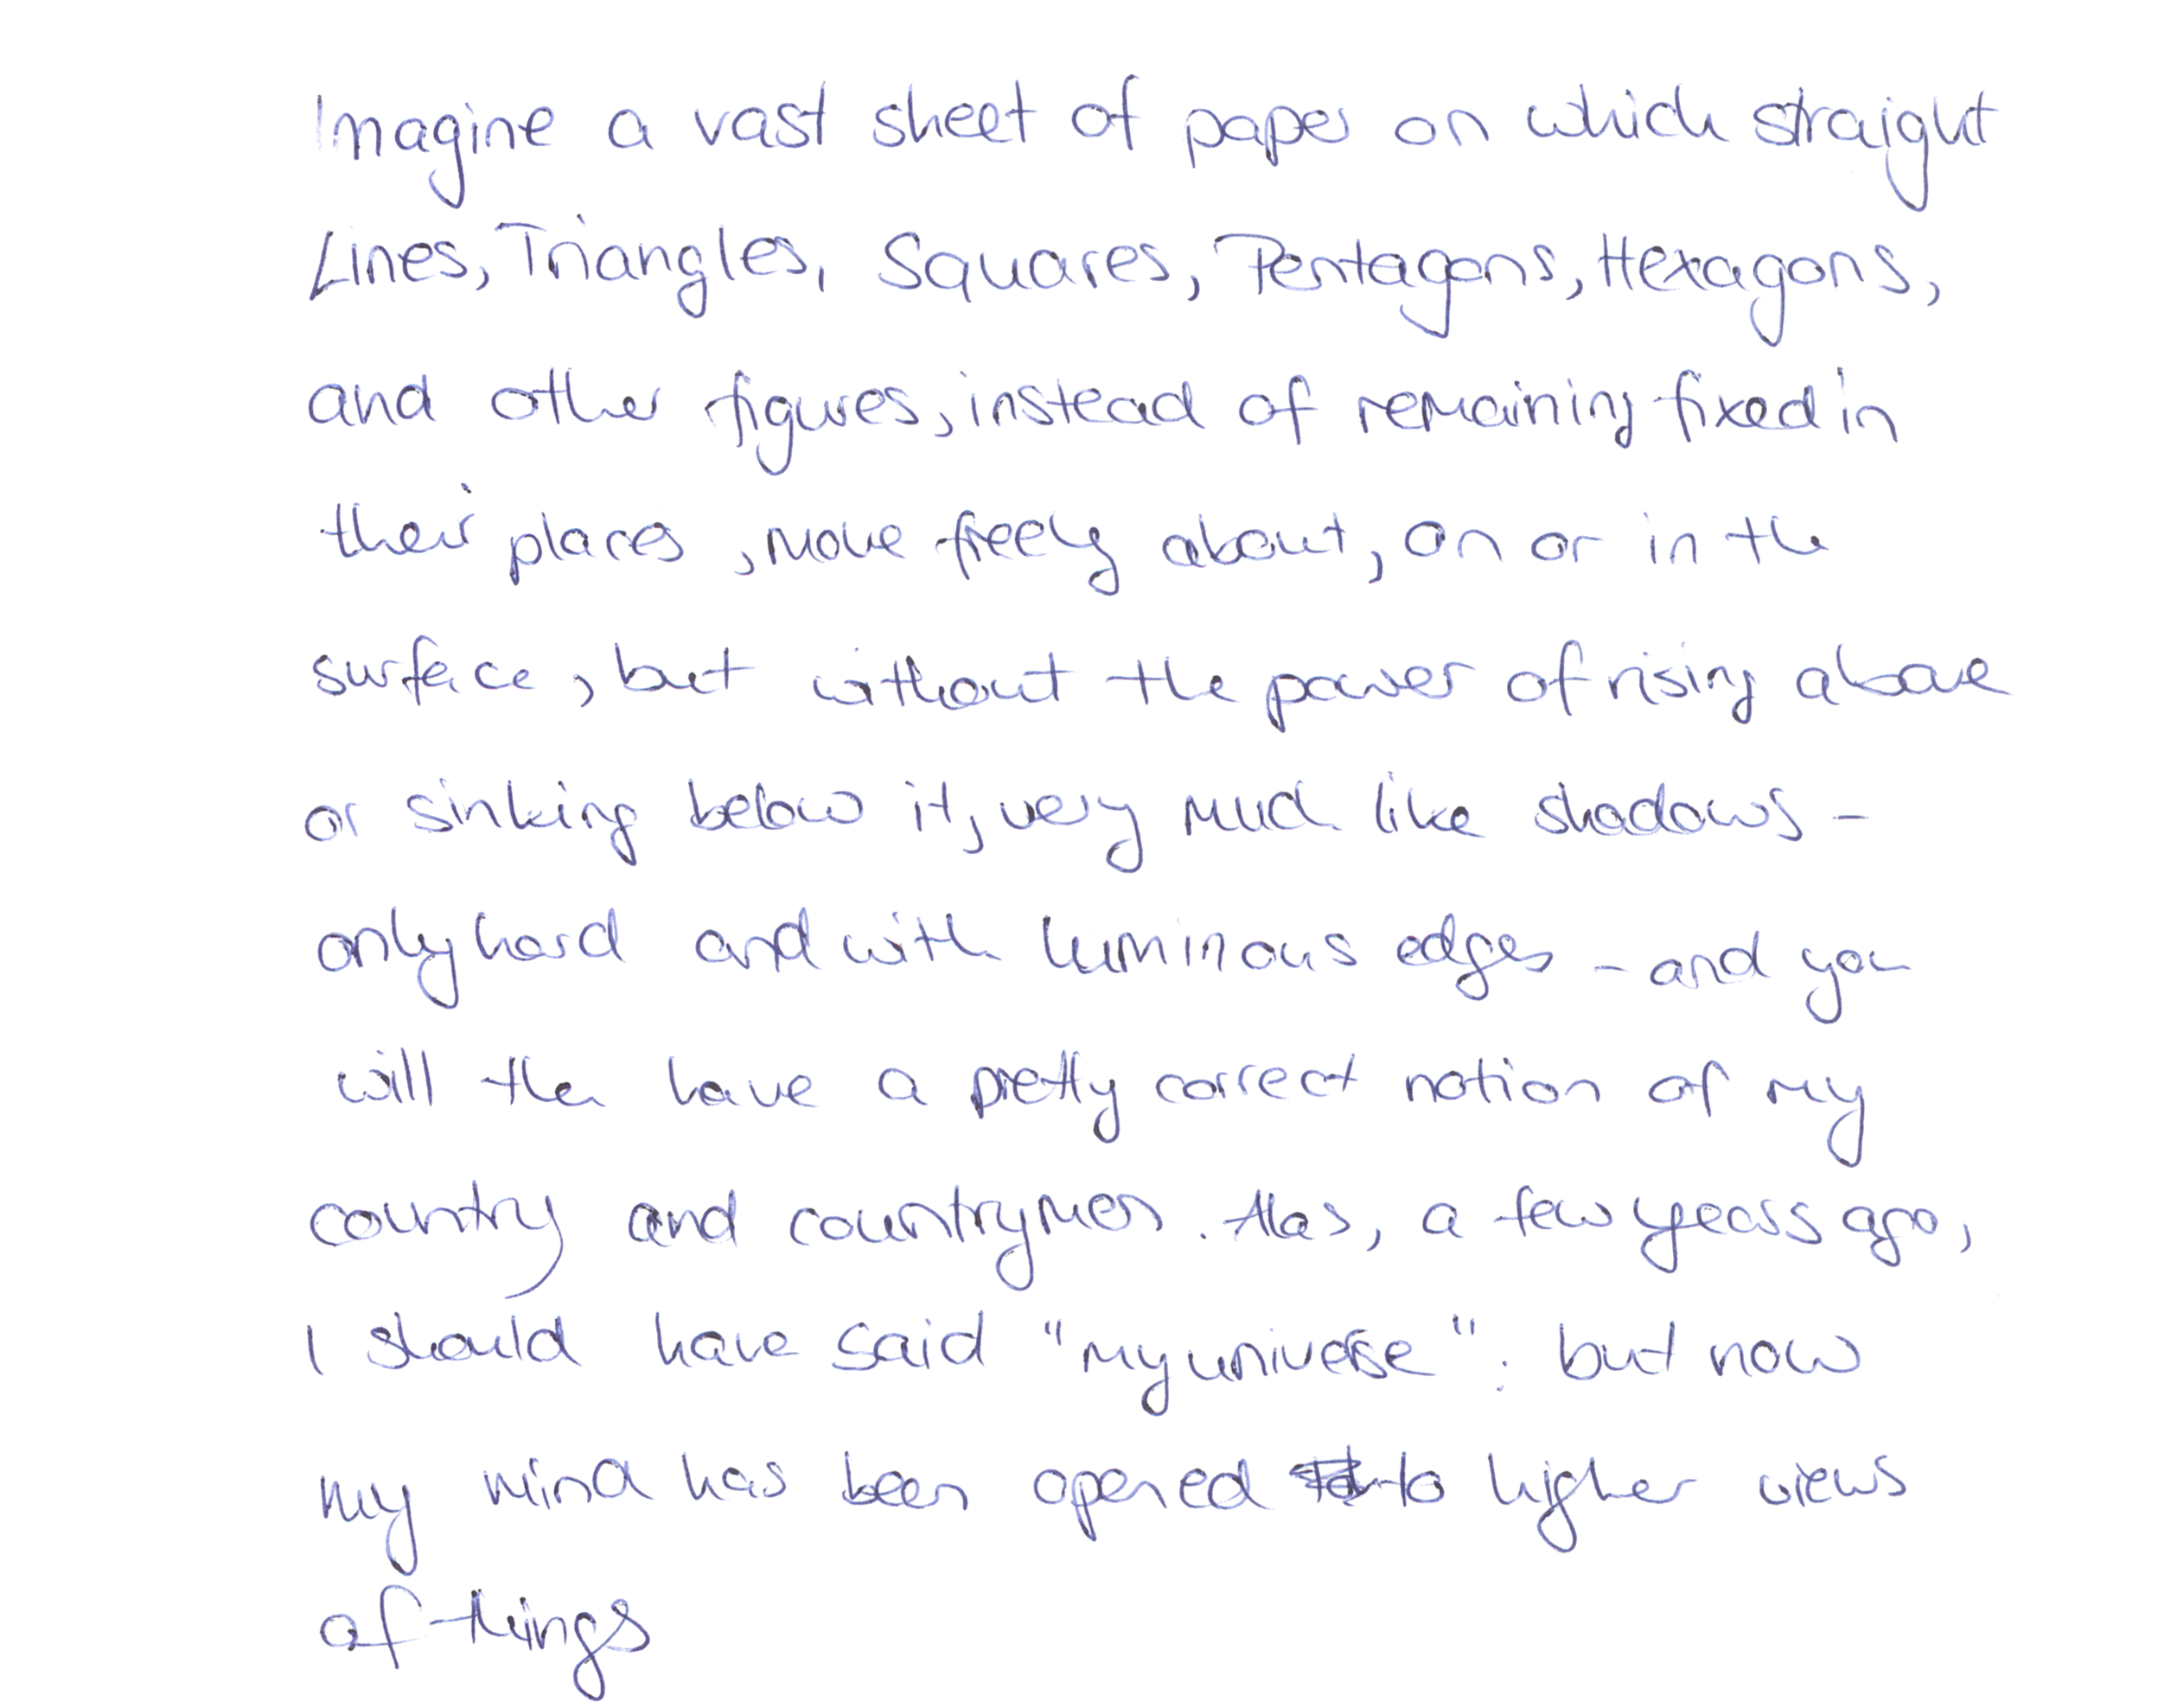 Imagine a vast sheet of paper on which straight
Lines, Triangles, Squares, Pentagons, Hexagons,
and other figures, instead of remaining fixed in
their places, move freely about, on or in the
surface, but without the power of rising above
or sinking below it, very much like shadows -
only hard and with luminous edges - and you
will then have a pretty correct notion of my
country and countrymen. Alas, a few years ago,
I should have said "my universe": but now
my mind has been opened to higher views
of things